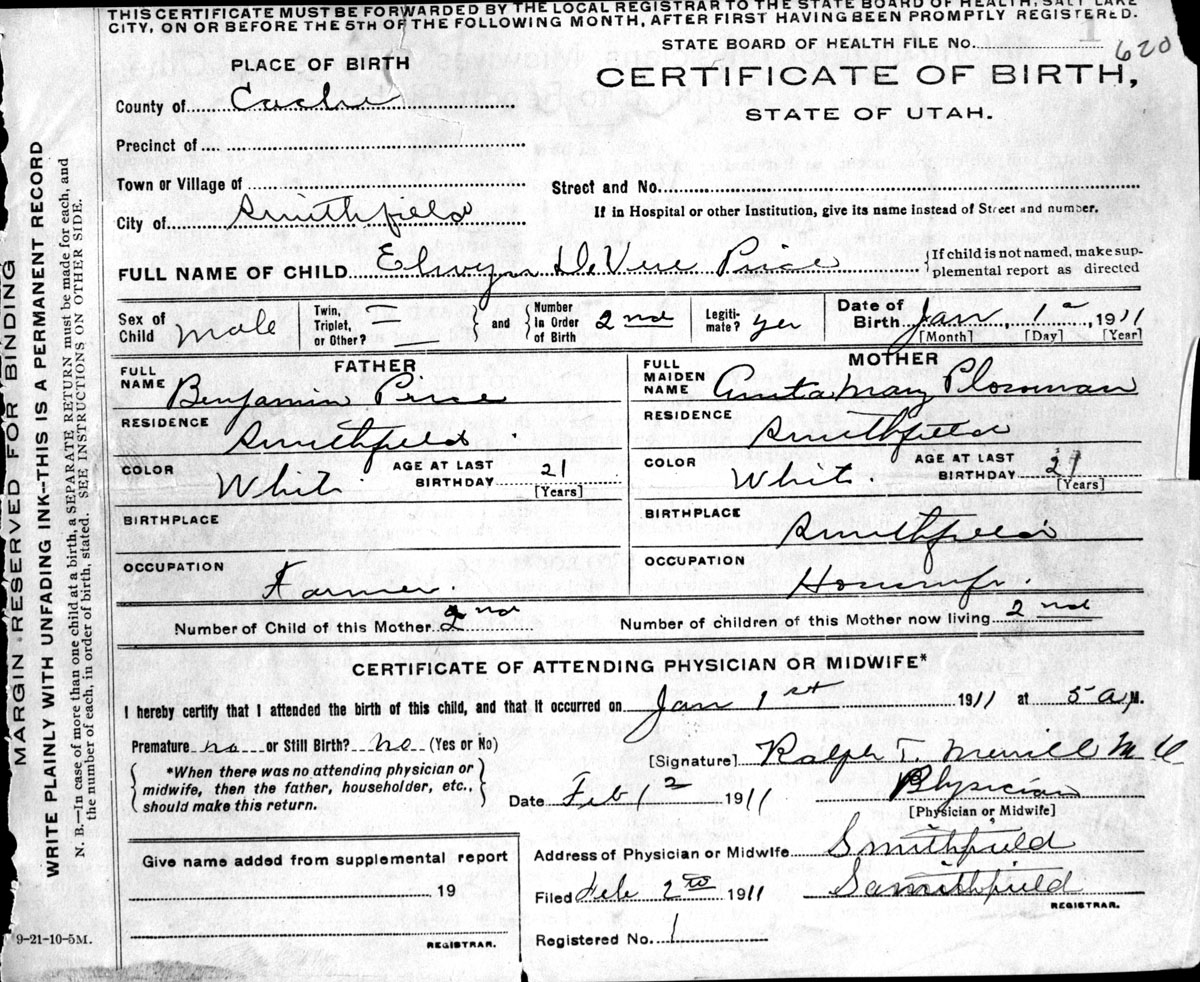 THIS CERTIFICATE MUST BE FORWARDED BY THE LOCAL REGISTRAR TO THE STATE BOARD OF HEALTH, SALT LAKE
CITY, ON OR BEFORE THE 5TH OF THE FOLLOWING MONTH, AFTER FIRST HAVING BEEN PROMPTLY REGISTERED.
STATE BOARD OF HEALTH FILE No. 620
PLACE OF BIRTH
CERTIFICATE OF BIRTH,
STATE OF UTAH.
County of Cache
Precinct of
Town or Village of
Street and No.
City of Smithfield
If in Hospital or other Institution, give its name instead of Street and number.
FULL NAME OF CHILD Elwyn DeVere Price
{If child is not named, make sup-
plemental report as directed
Sex of Child Male
Twin, Triplet, or Other?
and Number In Order of Birth 2nd
Legiti-mate? yes
Date of Birth Jan 1 1911
[Month] [Day] [Year]
FATHER
MOTHER
FULL NAME Benjamin Price
FULL MAIDEN NAME Mary
RESIDENCE Smithfield
RESIDENCE Smithfield
COLOR White AGE AT LAST BIRTHDAY 21 [Years]
COLOR White. AGE AT LAST BIRTHDAY 21 [Years]
BIRTHPLACE
BIRTHPLACE Smithfield
OCCUPATION Farmer.
OCCUPATION Housewife.
Number of Child of this Mother 2nd
Number of children of this Mother now living 2nd
CERTIFICATE OF ATTENDING PHYSICIAN OR MIDWIFE*
I hereby certify that I attended the birth of this child, and that it occurred on Jan 1st 1911 at 5 a M.
Premature no or Still Birth? no (Yes or No)
[Signature] Ralph T. Merrill M D
{*When there was no attending physician or
midwife, then the father, householder, etc.,
should make this return.}
Date Feb 1911
Physician
[Physician or Midwife]
Give name added from supplemental report
19
REGISTRAR.
Address of Physician or Midwife Smithfield
Filed Feb 2 1911
Smithfield
REGISTRAR.
Registered No. 1
9-21-10-5M.
MARGIN RESERVED FOR BINDING
WRITE PLAINLY WITH UNFADING INK--THIS IS A PERMANENT RECORD
N. B.—In case of more than one child at a birth, a SEPARATE RETURN must be made for each, and
the number of each, in order of birth, stated. SEE INSTRUCTIONS ON OTHER SIDE.